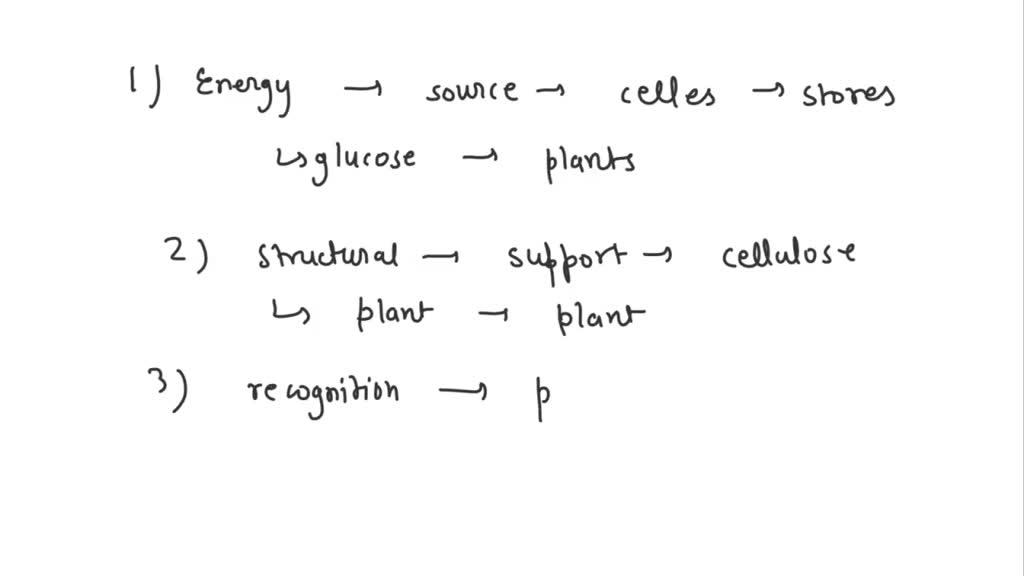 1) Energy → source → celles → stores
↳ glucose → plants
2) structural → support → cellulose
↳ plant → plant
3) recognition → p